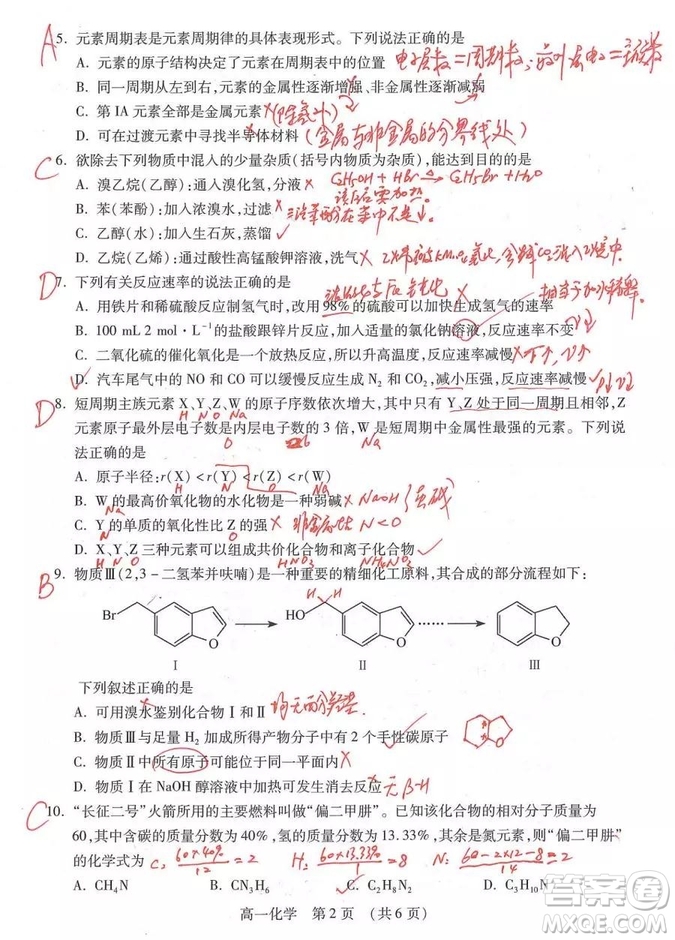 A 5. 元素周期表是元素周期律的具体表现形式。下列说法正确的是
A. 元素的原子结构决定了元素在周期表中的位置 电子层数=周期数;最外层电子=主族数
B. 同一周期从左到右,元素的金属性逐渐增强、非金属性逐渐减弱
C. 第 IA 元素全部是金属元素 × (除氢外)
D. 可在过渡元素中寻找半导体材料 (金属与非金属的分界线处)
C 6. 欲除去下列物质中混入的少量杂质(括号内物质为杂质),能达到目的的是
A. 溴乙烷(乙醇):通入溴化氢,分液 × C₂H₅OH + HBr △ C₂H₅Br + H₂O
B. 苯(苯酚):加入浓溴水,过滤 × 三溴苯酚在苯中不是↓
C. 乙醇(水):加入生石灰,蒸馏 ✓
D. 乙烷(乙烯):通过酸性高锰酸钾溶液,洗气 ×
D 7. 下列有关反应速率的说法正确的是
A. 用铁片和稀硫酸反应制氢气时,改用 98% 的硫酸可以加快生成氢气的速率
B. 100 mL 2 mol·L⁻¹的盐酸跟锌片反应,加入适量的氯化钠溶液,反应速率不变
C. 二氧化硫的催化氧化是一个放热反应,所以升高温度,反应速率减慢 × T↑, v↑
D. 汽车尾气中的 NO 和 CO 可以缓慢反应生成 N₂ 和 CO₂,减小压强,反应速率减慢 ✓ P↓ v↓
D 8. 短周期主族元素 X、Y、Z、W 的原子序数依次增大,其中只有 Y、Z 处于同一周期且相邻,Z
H N O Na
元素原子最外层电子数是内层电子数的 3 倍,W 是短周期中金属性最强的元素。下列说
O Na
法正确的是
A. 原子半径:r(X)<r(Y)<r(Z)<r(W)
H N O Na
B. W 的最高价氧化物的水化物是一种弱碱 × NaOH (强碱)
C. Y 的单质的氧化性比 Z 的强 × 非金属性 N<O
N O
D. X、Y、Z 三种元素可以组成共价化合物和离子化合物 ✓
H N O HNO₃ NH₄NO₃
B 9. 物质Ⅲ(2,3-二氢苯并呋喃)是一种重要的精细化工原料,其合成的部分流程如下:
H H
Br O HO O …… O
Ⅰ Ⅱ Ⅲ
下列叙述正确的是
A. 可用溴水鉴别化合物Ⅰ和Ⅱ
B. 物质Ⅲ与足量 H₂ 加成所得产物分子中有 2 个手性碳原子 ✓
C. 物质Ⅱ中所有原子可能位于同一平面内 ×
D. 物质Ⅰ在 NaOH 醇溶液中加热可发生消去反应 × 无β-H
C 10. “长征二号”火箭所用的主要燃料叫做“偏二甲肼”。已知该化合物的相对分子质量为
60,其中含碳的质量分数为 40%,氢的质量分数为 13.33%,其余是氮元素,则“偏二甲肼”
的化学式为 C: 60×40%/12=2 H: 60×13.33%/1=8 N: 60-2×12-8/14=2
A. CH₄N B. CN₃H₆ C. C₂H₈N₂ D. C₃H₁₀N
高一化学 第 2 页 (共 6 页)
答案圈
MXQE.COM